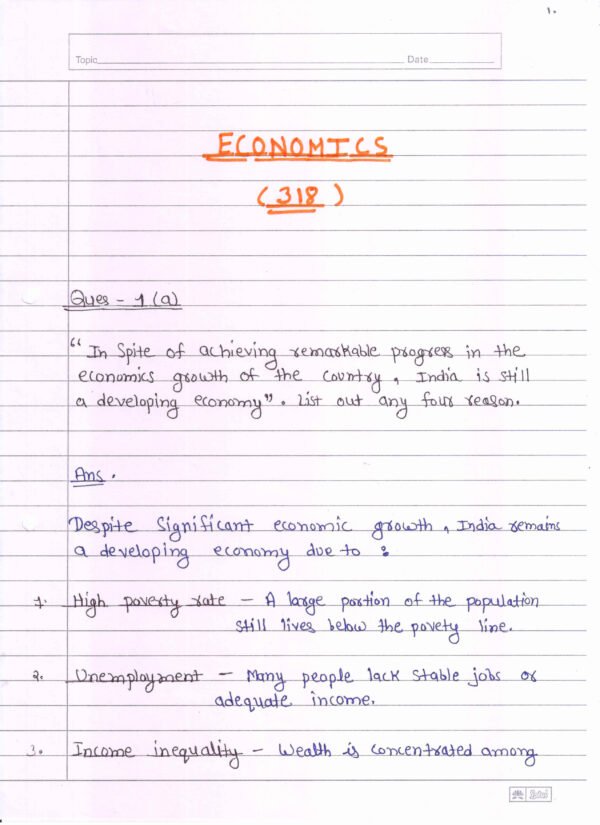 1.
Topic Date
ECONOMICS
(318)
Ques - 1 (a)
“In Spite of achieving remarkable progress in the
economics growth of the country, India is still
a developing economy”. List out any four reason.
Ans.
Despite Significant economic growth, India remains
a developing economy due to :
1. High poverty rate - A large portion of the population
still lives below the povety line.
2. Unemployment - Many people lack stable jobs or
adequate income.
3. Income inequality - Wealth is concentrated among